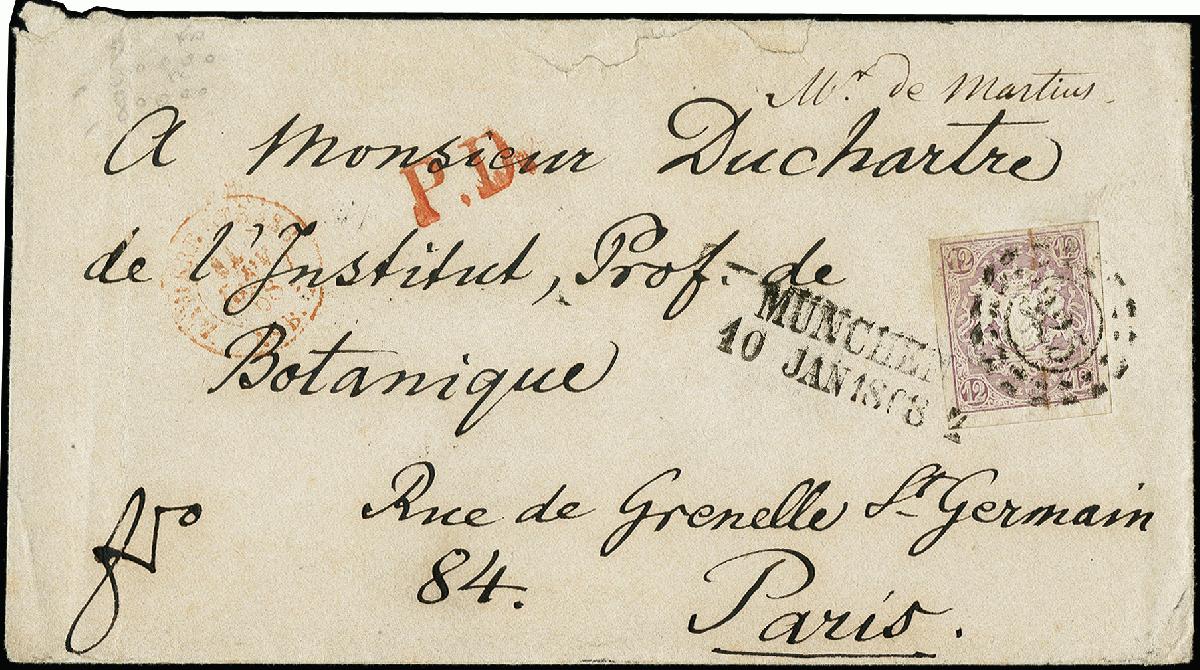 Mr. de Martius.
A Monsieur Duchartre
P.D.
de l'Institut, Prof. de
Botanique
12 12
12
MÜNCHEN
10 JAN 1868
fro
Rue de Grenelle St Germain
84.
Paris.